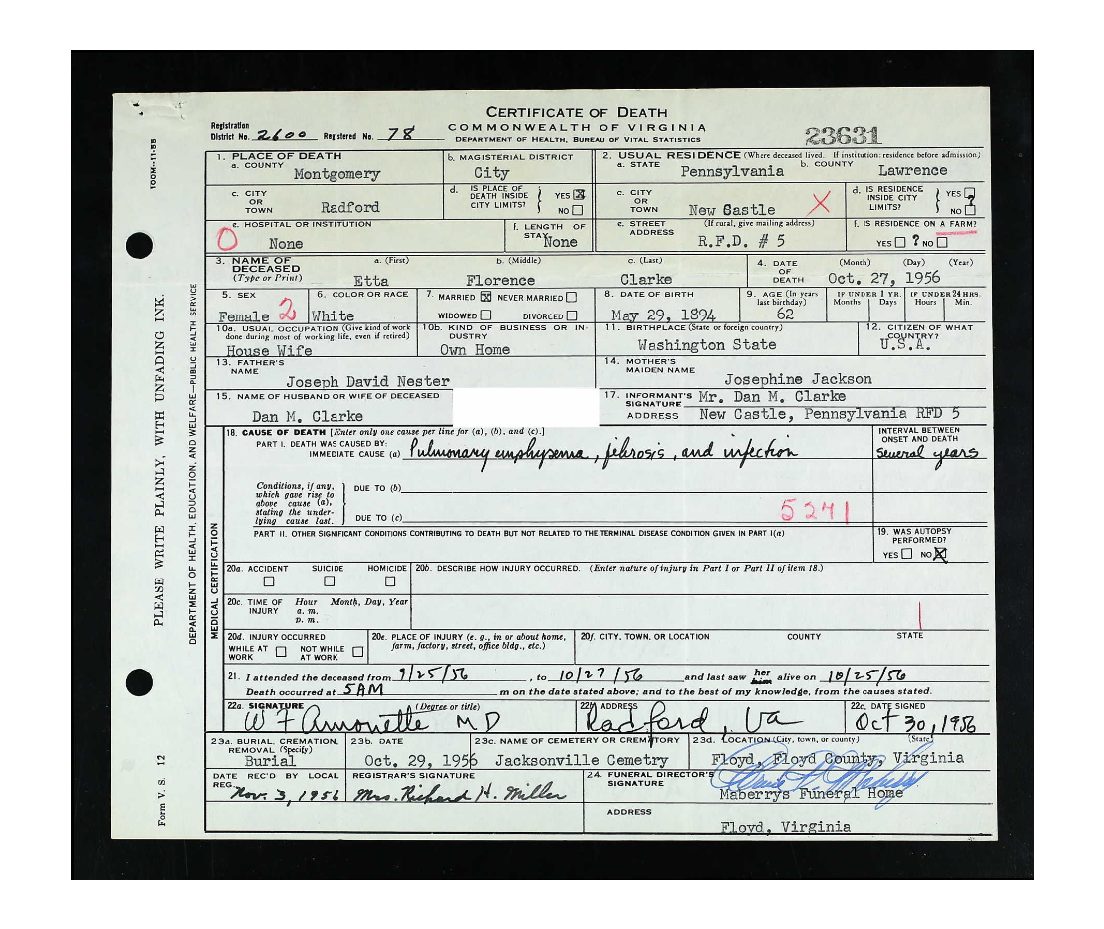 CERTIFICATE OF DEATH
COMMONWEALTH OF VIRGINIA
DEPARTMENT OF HEALTH, BUREAU OF VITAL STATISTICS
Registration District No. 2600 Registered No. 78
23631
100M—11-55
PLEASE WRITE PLAINLY, WITH UNFADING INK.
DEPARTMENT OF HEALTH, EDUCATION, AND WELFARE—PUBLIC HEALTH SERVICE
Form V. S. 12
1. PLACE OF DEATH
a. COUNTY Montgomery
b. MAGISTERIAL DISTRICT City
2. USUAL RESIDENCE (Where deceased lived. If institution: residence before admission)
a. STATE Pennsylvania b. COUNTY Lawrence
c. CITY OR TOWN Radford
d. IS PLACE OF DEATH INSIDE CITY LIMITS? YES X NO
c. CITY OR TOWN New Castle X
d. IS RESIDENCE INSIDE CITY LIMITS? YES NO ?
e. HOSPITAL OR INSTITUTION None 0
f. LENGTH OF STAY None
e. STREET ADDRESS (If rural, give mailing address) R.F.D. # 5
f. IS RESIDENCE ON A FARM? YES ? NO
3. NAME OF DECEASED (Type or Print)
a. (First) Etta b. (Middle) Florence c. (Last) Clarke
4. DATE OF DEATH (Month) (Day) (Year) Oct. 27, 1956
5. SEX Female 2
6. COLOR OR RACE White
7. MARRIED X NEVER MARRIED WIDOWED DIVORCED
8. DATE OF BIRTH May 29, 1894
9. AGE (In years last birthday) 62
IF UNDER 1 YR. Months Days IF UNDER 24 HRS. Hours Min.
10a. USUAL OCCUPATION (Give kind of work done during most of working life, even if retired) House Wife
10b. KIND OF BUSINESS OR INDUSTRY Own Home
11. BIRTHPLACE (State or foreign country) Washington State
12. CITIZEN OF WHAT COUNTRY? U.S.A.
13. FATHER'S NAME Joseph David Nester
14. MOTHER'S MAIDEN NAME Josephine Jackson
15. NAME OF HUSBAND OR WIFE OF DECEASED Dan M. Clarke
17. INFORMANT'S SIGNATURE Mr. Dan M. Clarke
ADDRESS New Castle, Pennsylvania RFD 5
MEDICAL CERTIFICATION
18. CAUSE OF DEATH [Enter only one cause per line for (a), (b), and (c).]
PART I. DEATH WAS CAUSED BY:
IMMEDIATE CAUSE (a) Pulmonary emphysema, fibrosis, and infection
INTERVAL BETWEEN ONSET AND DEATH Several years
Conditions, if any, which gave rise to above cause (a), stating the underlying cause last.
DUE TO (b)
DUE TO (c)
5271
PART II. OTHER SIGNFICANT CONDITIONS CONTRIBUTING TO DEATH BUT NOT RELATED TO THE TERMINAL DISEASE CONDITION GIVEN IN PART I(a)
19. WAS AUTOPSY PERFORMED? YES NO X
20a. ACCIDENT SUICIDE HOMICIDE
20b. DESCRIBE HOW INJURY OCCURRED. (Enter nature of injury in Part I or Part II of item 18.)
20c. TIME OF INJURY Hour a. m. p. m. Month, Day, Year
20d. INJURY OCCURRED WHILE AT WORK NOT WHILE AT WORK
20e. PLACE OF INJURY (e. g., in or about home, farm, factory, street, office bldg., etc.)
20f. CITY, TOWN, OR LOCATION COUNTY STATE
21. I attended the deceased from 9/25/56, to 10/27/56 and last saw her him alive on 10/25/56
Death occurred at 5AM m on the date stated above; and to the best of my knowledge, from the causes stated.
22a. SIGNATURE (Degree or title) W F Amonette MD
22b. ADDRESS Radford, Va
22c. DATE SIGNED Oct 30, 1956
23a. BURIAL, CREMATION, REMOVAL (Specify) Burial
23b. DATE Oct. 29, 1956
23c. NAME OF CEMETERY OR CREMATORY Jacksonville Cemetry
23d. LOCATION (City, town, or county) (State) Floyd, Floyd County, Virginia
DATE REC'D BY LOCAL REG. Nov. 3, 1956
REGISTRAR'S SIGNATURE Mrs. Richard H. Miller
24. FUNERAL DIRECTOR'S SIGNATURE
Maberrys Funeral Home
ADDRESS Floyd, Virginia